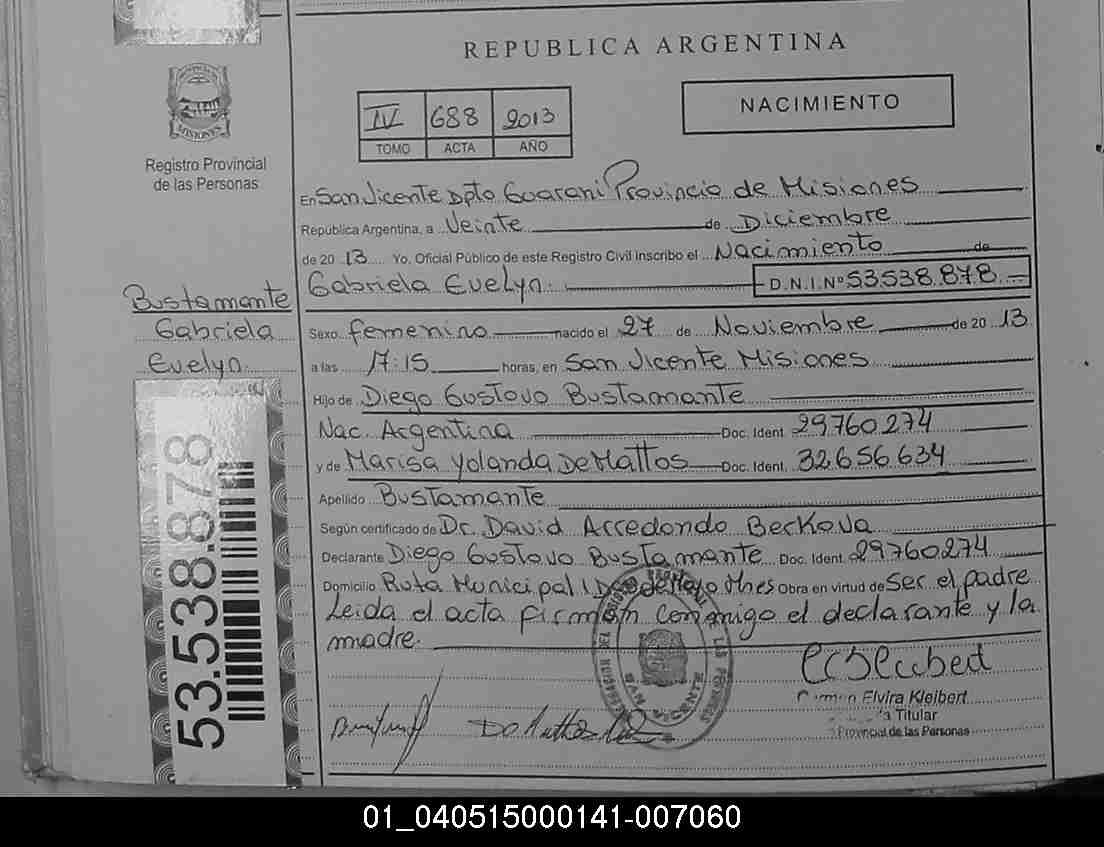 REPUBLICA ARGENTINA
NACIMIENTO
IV 688 2013
TOMO ACTA AÑO
MISIONES
Registro Provincial
de las Personas
En San Vicente Dpto Guarani Provincia de Misiones
República Argentina, a Veinte de Diciembre
de 2013 Yo. Oficial Público de este Registro Civil inscribo el Nacimiento de
Gabriela Evelyn. D.N.I.Nº 53.538.878.
Bustamante
Gabriela
Evelyn.
Sexo femenino nacido el 27 de Noviembre de 2013
a las 17:15 horas, en San Vicente Misiones
Hijo de Diego Gustavo Bustamante
Nac. Argentina Doc. Ident. 29.760.274
y de Marisa Yolanda De Mattos Doc. Ident. 32.656.634
Apellido Bustamante
Según certificado de Dr. David Arredondo Beckova
Declarante Diego Gustavo Bustamante Doc. Ident. 29760274
Domicilio Ruta Municipal 1 de Mayo Mnes Obra en virtud de Ser el padre
Leida el acta firman conmigo el declarante y la
madre.
53.538.878
SAN VICENTE
LAS PERSONAS
Elvira Kleibert
Titular
Provincial de las Personas
01_040515000141-007060